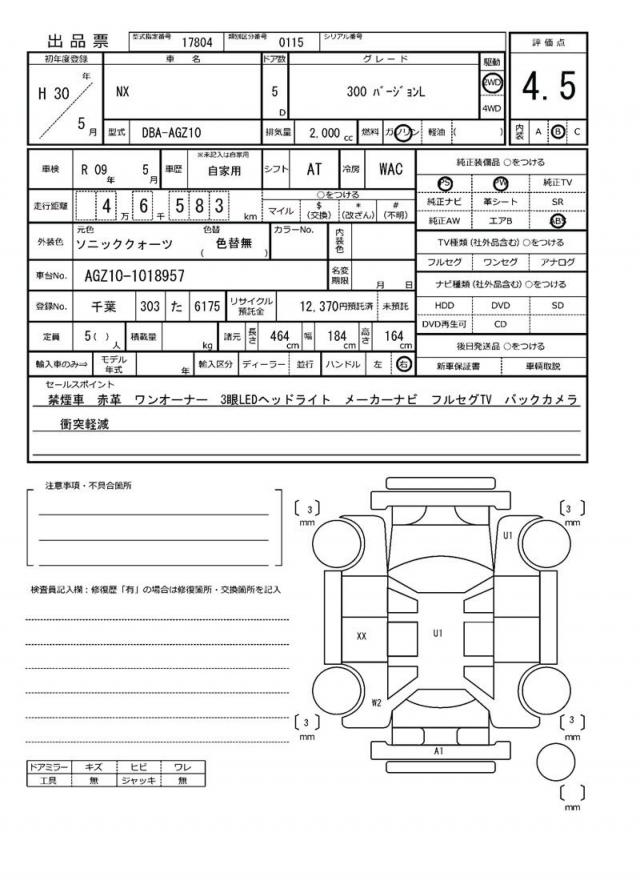 出品票 型式指定番号 17804 類別区分番号 0115 シリアル番号
初年度登録 車名 ドア数 グレード 駆動 評価点
H 30 年 5 月 NX 5 D 300 バージョンL 2WD 4WD 4.5
型式 DBA-AGZ10 排気量 2,000 cc 燃料 ガソリン 軽油 ( ) 内装 A B C
車検 R 09 年 5 月 車歴 ※未記入は自家用 自家用 シフト AT 冷房 WAC
走行距離 4 万 6 千 5 8 3 km ○をつける マイル $ (交換) * (改ざん) # (不明)
外装色 元色 ソニッククォーツ 色替 ( 色替無 ) カラーNo. 内装色
車台No. AGZ10-1018957 名変期限 月 日
登録No. 千葉 303 た 6175 リサイクル預託金 12,370円預託済 未預託
定員 5( ) 人 積載量 kg 諸元 長さ 464 cm 幅 184 cm 高さ 164 cm
輸入車のみ⇒ モデル年式 年 輸入区分 ディーラー 並行 ハンドル 左 右
純正装備品 ○をつける
PS PW 純正TV
純正ナビ 革シート SR
純正AW エアB ABS
TV種類(社外品含む) ○をつける
フルセグ ワンセグ アナログ
ナビ種類(社外品含む) ○をつける
HDD DVD SD
DVD再生可 CD
後日発送品 ○をつける
新車保証書 車輌取説
セールスポイント
禁煙車 赤革 ワンオーナー 3眼LEDヘッドライト メーカーナビ フルセグTV バックカメラ
衝突軽減
注意事項・不具合箇所
検査員記入欄:修復歴「有」の場合は修復箇所・交換箇所を記入
ドアミラー キズ ヒビ ワレ
工具 無 ジャッキ 無
[ 3 ] mm
[ 3 ] mm
U1
XX
U1
W2
[ 3 ] mm
[ 3 ] mm
A1
[ ] mm